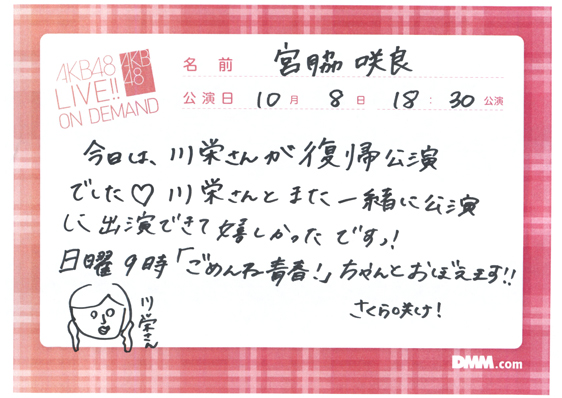 AKB48
LIVE!!
ON DEMAND
AKB
48
名前 宮脇 咲良
公演日 10月 8日 18:30公演
今日は、川栄さんが復帰公演
でした♡ 川栄さんとまた一緒に公演
に出演できて嬉しかったですっ!
日曜9時「ごめんね青春!」ちゃんとおぼえます!!
さくら咲け!
川栄さん
DMM.com